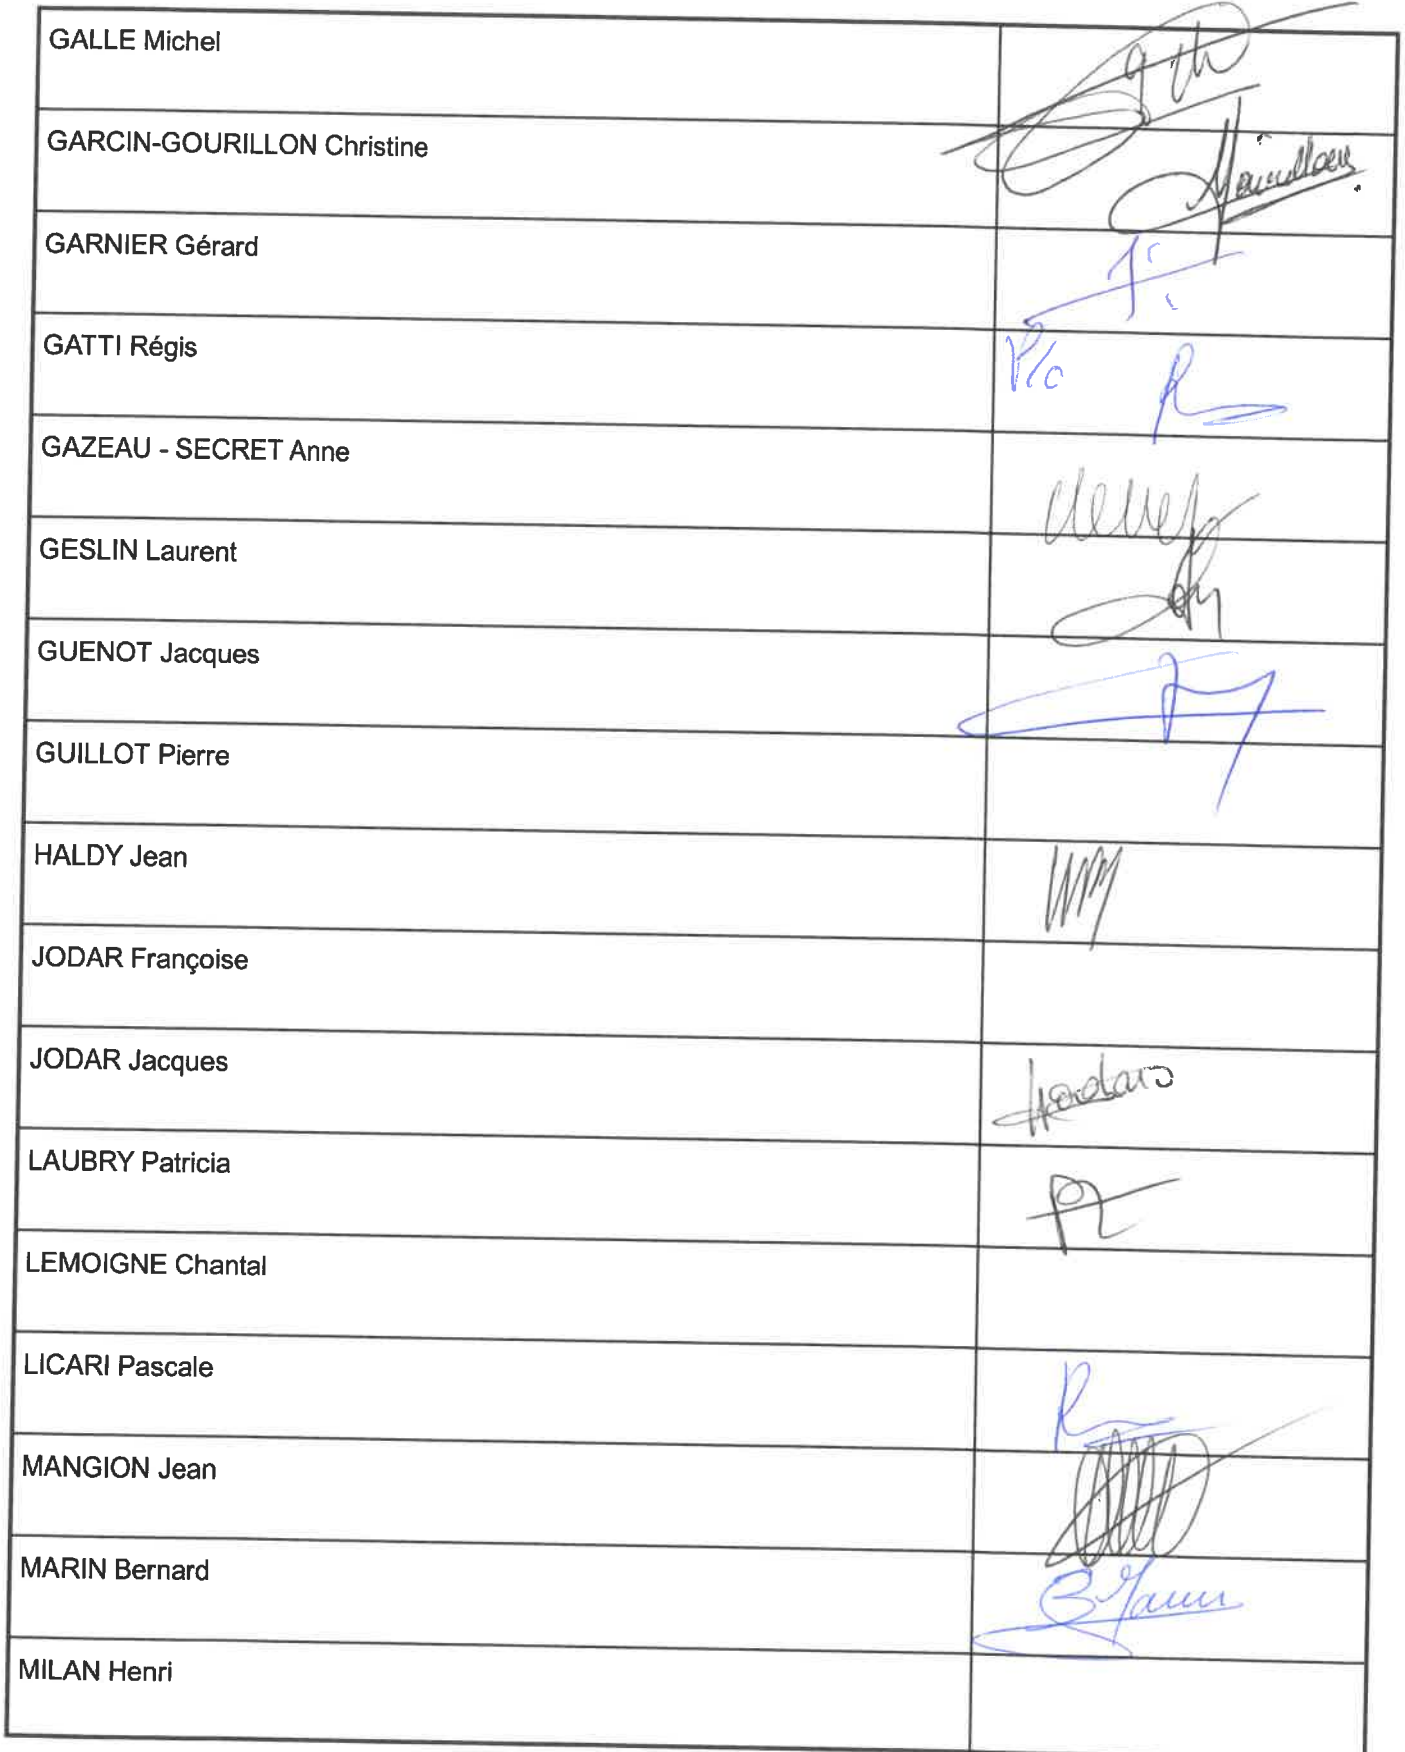 GALLE Michel
GARCIN-GOURILLON Christine
GARNIER Gérard
GATTI Régis
P/o
GAZEAU - SECRET Anne
GESLIN Laurent
GUENOT Jacques
GUILLOT Pierre
HALDY Jean
JODAR Françoise
JODAR Jacques
LAUBRY Patricia
LEMOIGNE Chantal
LICARI Pascale
MANGION Jean
MARIN Bernard
B Marin
MILAN Henri